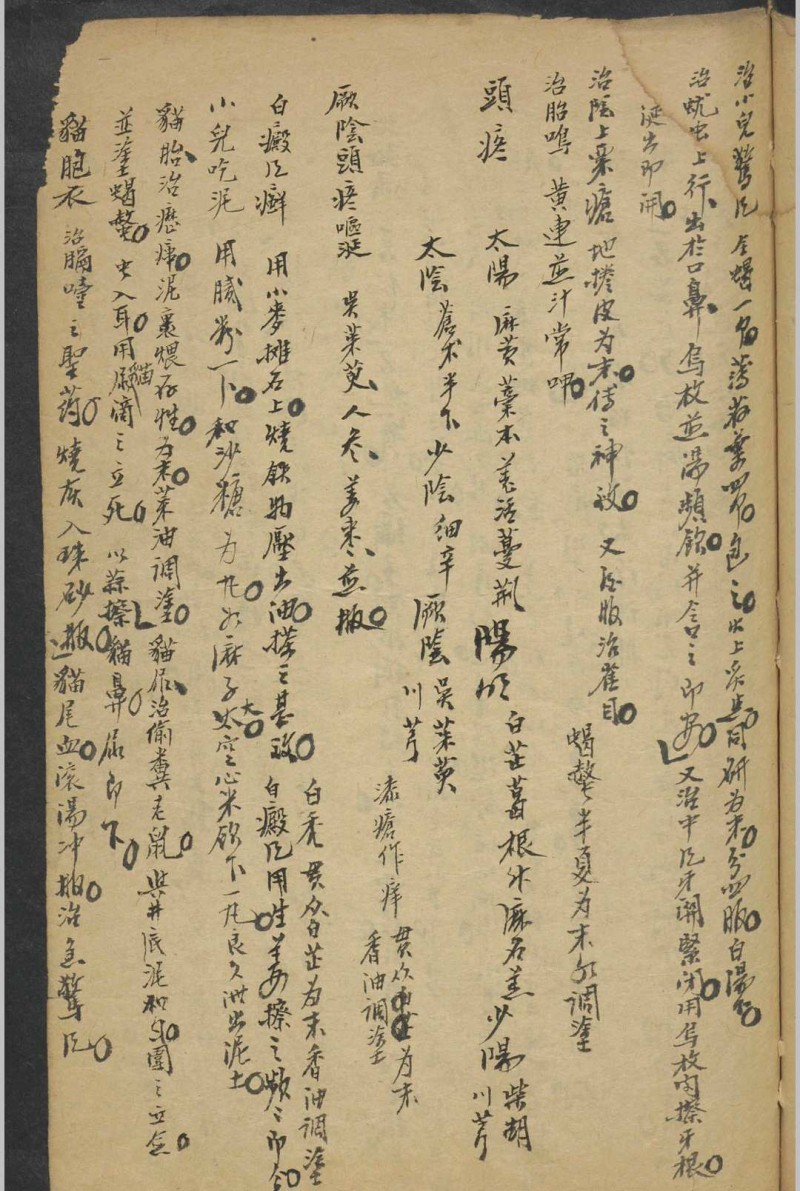 治小兒驚风 全蝎一個 薄荷葉四個包之 火上炙焦同研为末 分四服 白湯下
治蚘虫上行、出於口鼻、烏枚煎湯頻飲 并含之即安 又治中风牙関緊闭 用烏枚肉擦牙根
涎出即開
治陰上粟瘡 地捲皮为末 傅之神效 又 服治雀目 蝎螫 半夏为末水調塗
治胎鳴 黄連煎汁常呷
頭疼 太陽 麻黄藁本羌活蔓荆 陽明 白芷葛根升麻石羔 少陽 柴胡川芎
太陰 蒼朮半下 少陰 細辛 厥陰 吳茱萸川芎
漆瘡作痒 贯众 为末香油調塗
厥陰頭疼嘔涎 吳茱萸、人参、姜枣、煎服
白秃 贯众白芷为末香油調塗
白癜风癬 用小麥摊石上燒鉄物壓出油搽之甚效 白癜风用生姜擦之頻々即愈
小兒吃泥 用膩粉一下 和沙糖为丸如麻子大 空心米飲下一丸良久泄出泥土
貓胎治 泥裹煨存性为末菜油調塗 貓尿治偷糞老鼠 與井底泥和匀圍之立愈
並塗蝎螫 虫入耳用貓尿滴之立死 以蒜擦貓鼻尿即下
貓胞衣 治膈噎之聖药 燒灰入珠砂 服 貓尾血滚湯冲 治急驚风